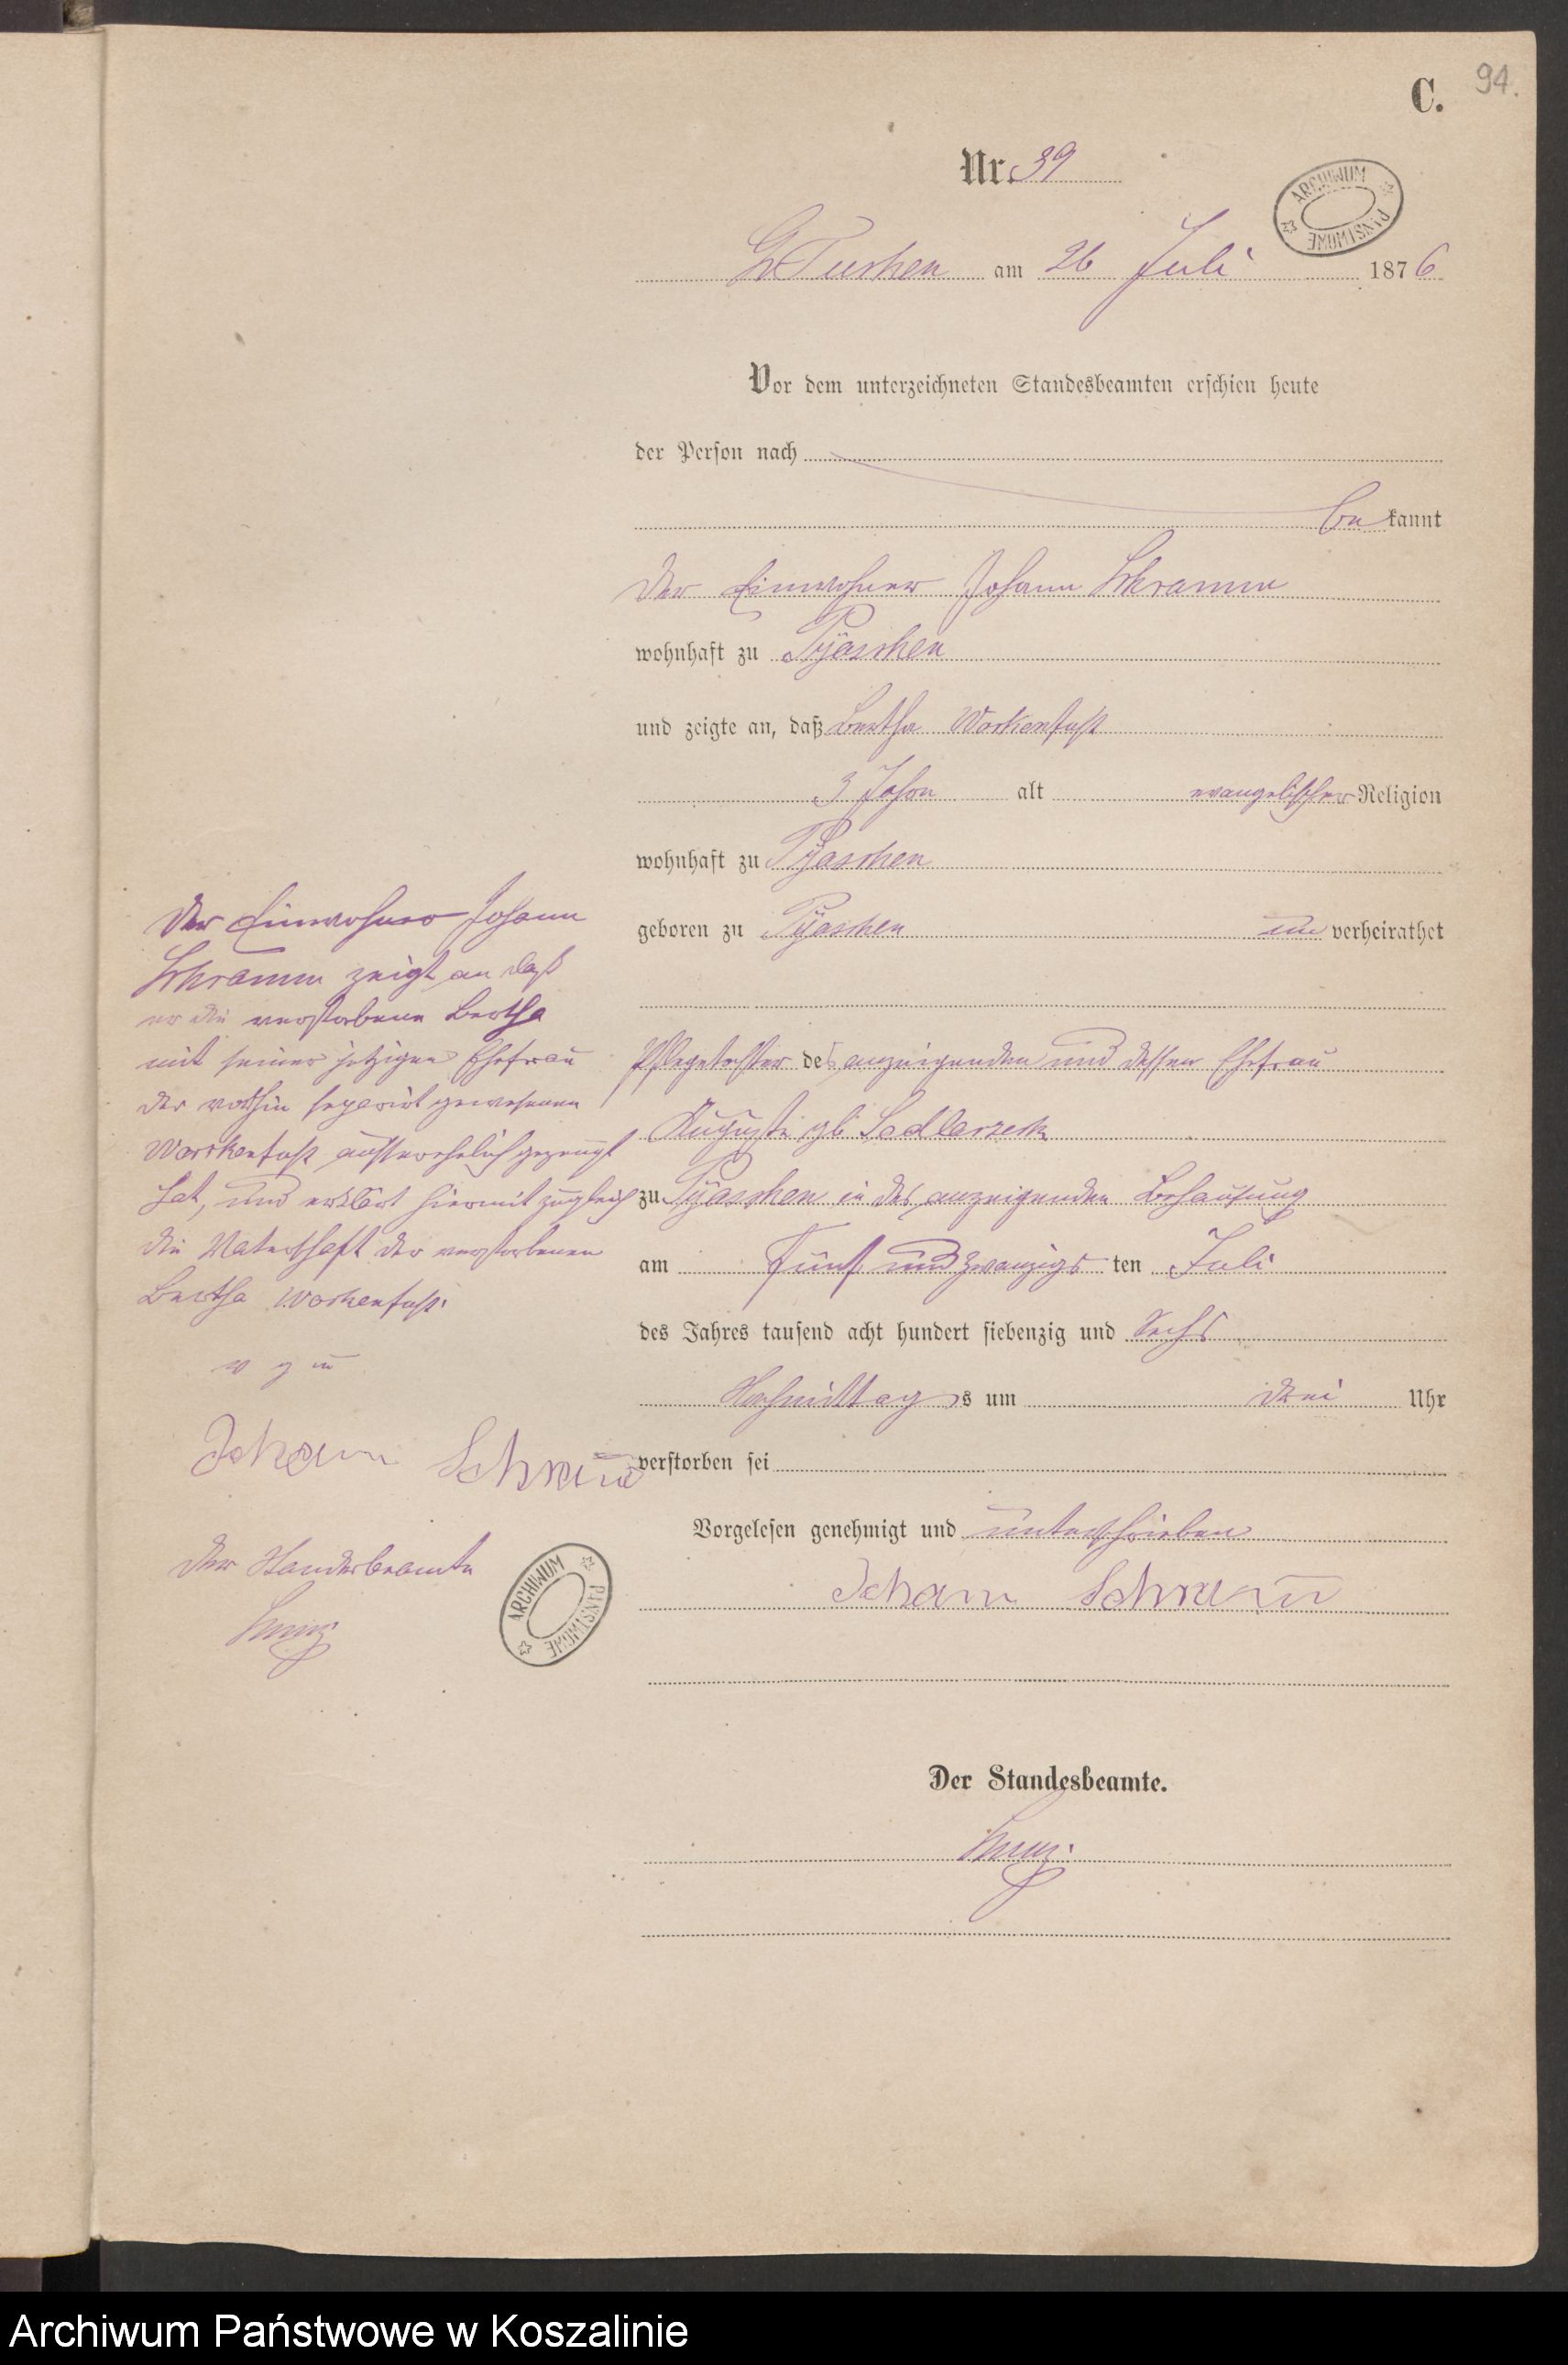 C. 94.
Nr. 39
ARCHIWUM PAŃSTWOWE
Gr Tuchen am 26 Juli 1876
Vor dem unterzeichneten Standesbeamten erschien heute
der Person nach
bekannt
der Einwohner Johann Schramm
wohnhaft zu Pyaschen
und zeigte an, daß Bertha Workentust
3 Jahr alt evangelischer Religion
wohnhaft zu Pyaschen
geboren zu Pyaschen unverheirathet
Pflegetochter des anzeigenden und dessen Ehefrau
Auguste gb Sadlarzek
zu Pyaschen in des anzeigenden Behausung
am Fünf und zwanzigs ten Juli
des Jahres tausend acht hundert siebenzig und Sechs
Nachmittags um drei Uhr
verstorben sei
Vorgelesen genehmigt und unterschrieben
Johann Schram̄
Der Standesbeamte.
Der Einwohner Johann
Schramm zeigt an daß
er die verstorbene Bertha
mit seiner jetzigen Ehefrau
der vorhin separirt gewesenen
Workentust ausserehelich gezeugt
hat, und erklärt hiermit zugleich
die Vaterschaft der verstorbenen
Bertha Workentust.
v g u
Johann Schram̄
Der Standesbeamte
ARCHIWUM PAŃSTWOWE
Archiwum Państwowe w Koszalinie